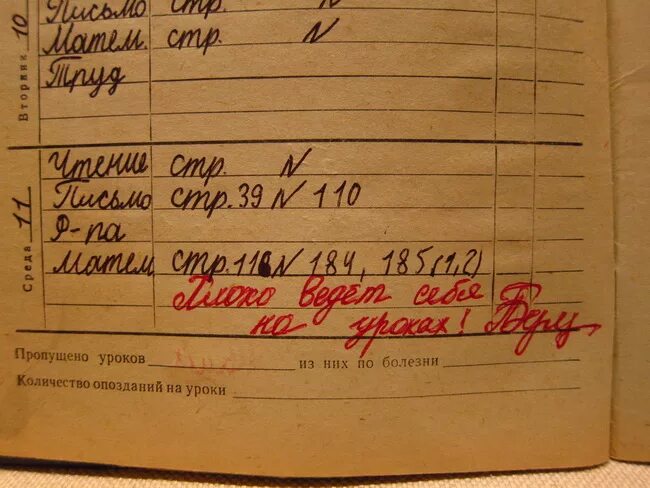 Письмо стр. N
Вторник 10
Матем. стр. N
Труд
Среда 11
Чтение стр. N
Письмо стр. 39 N 110
Ф-па
Матем стр. 116 N 184, 185,(1,2)
Плохо ведёт себя
на уроках!
Пропущено уроков из них по болезни
Количество опозданий на уроки